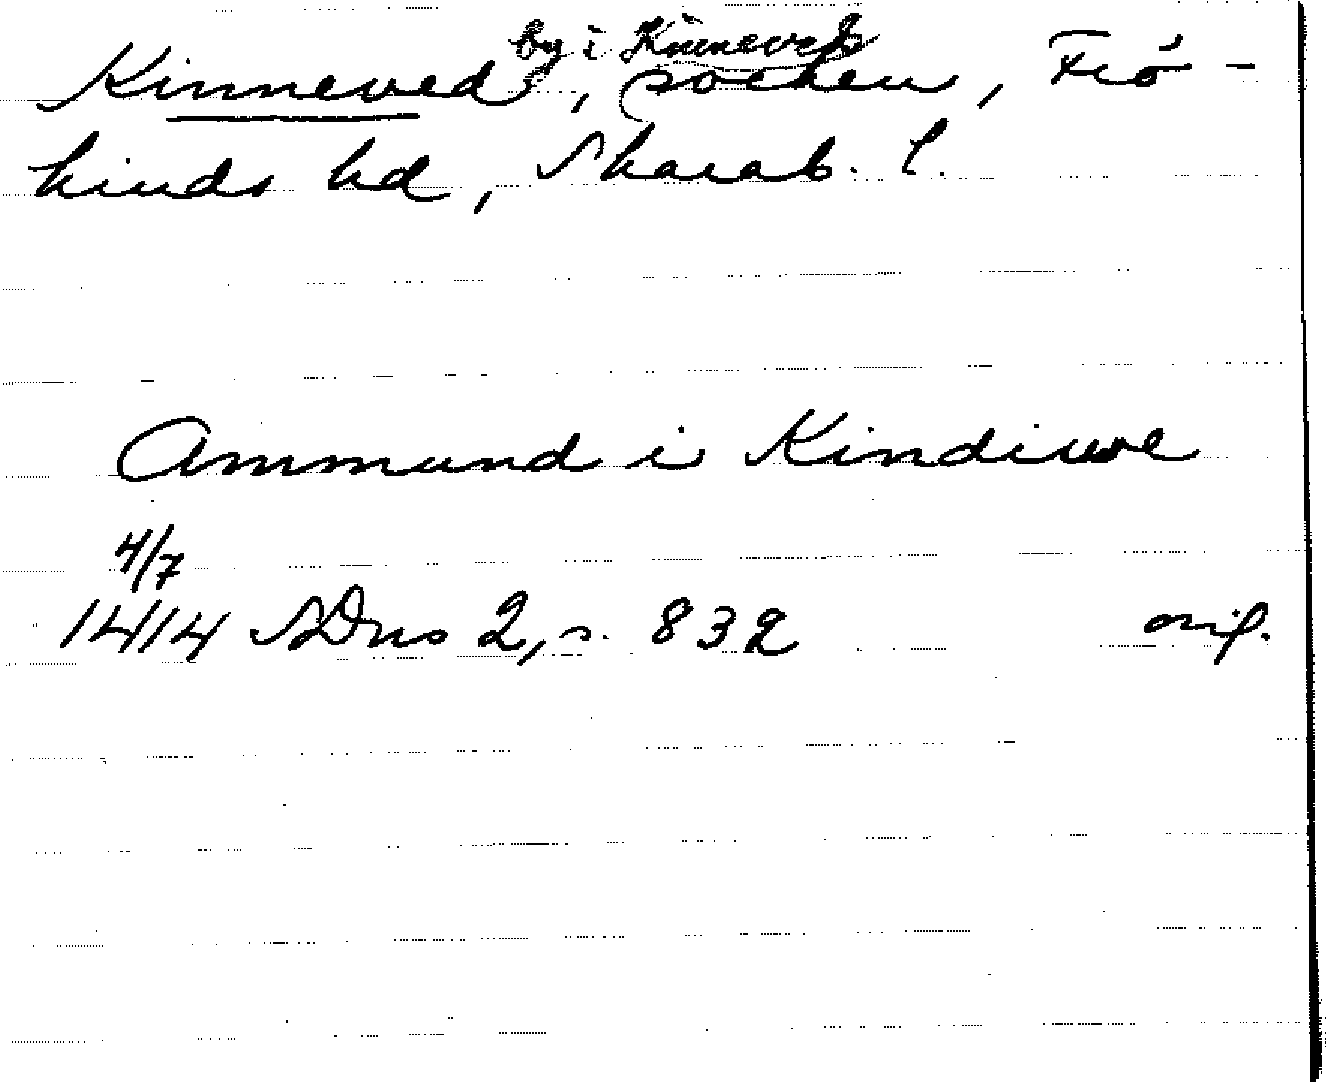 by i Kinneveds
Kinneved, socken, Frö-
kinds hd, Skarab. l.
Ammund i Kindiwe
4/7
1414 SDns 2, s. 832 orig.